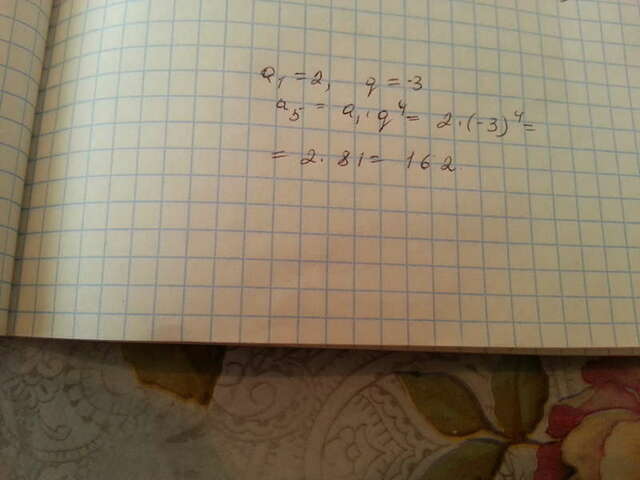 a₁ = 2, q = -3
a₅ = a₁ · q⁴ = 2 · (-3)⁴ =
= 2 · 81 = 162